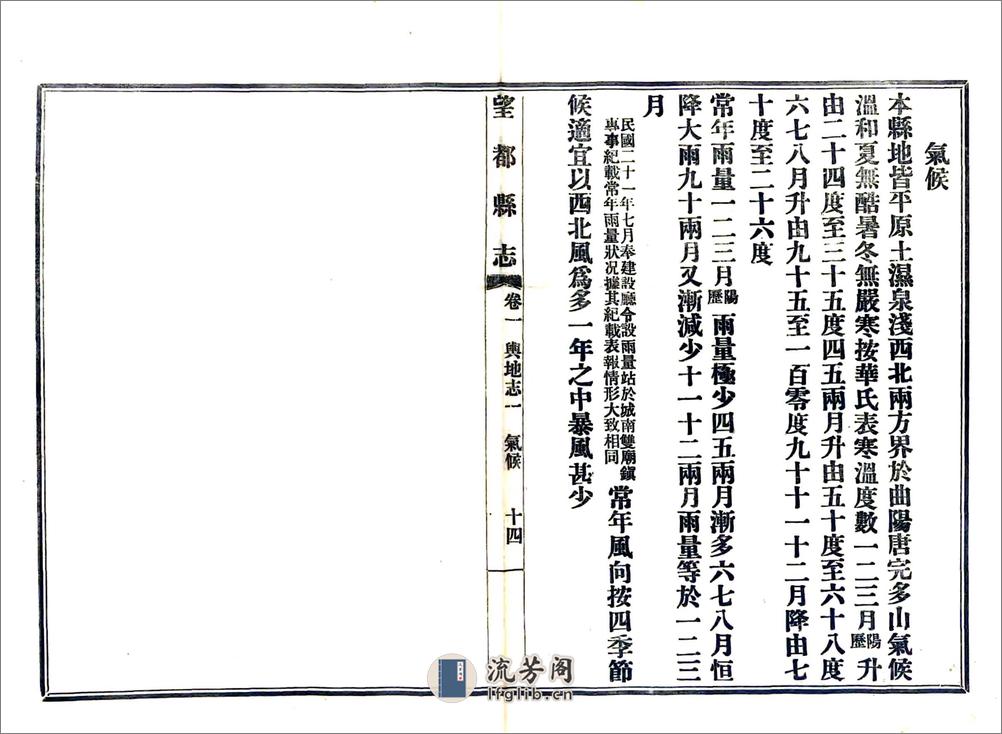 氣候
本縣地皆平原土濕泉淺西北兩方界於曲陽唐完多山氣候
溫和夏無酷暑冬無嚴寒按華氏表寒溫度數一二三月陽歷升
由二十四度至三十五度四五兩月升由五十度至六十八度
六七八月升由九十五至一百零度九十十一十二月降由七
十度至二十六度
常年雨量一二三月陽歷雨量極少四五兩月漸多六七八月恒
降大雨九十兩月又漸減少十一十二兩月雨量等於一二三
月
民國二十一年七月奉建設廳令設雨量站於城南雙廟鎮
專事紀載常年雨量狀况據其紀載表報情形大致相同
常年風向按四季節
候適宜以西北風爲多一年之中暴風甚少
望都縣志
卷一 輿地志一 氣候 十四
流芳阁
lfglib.cn